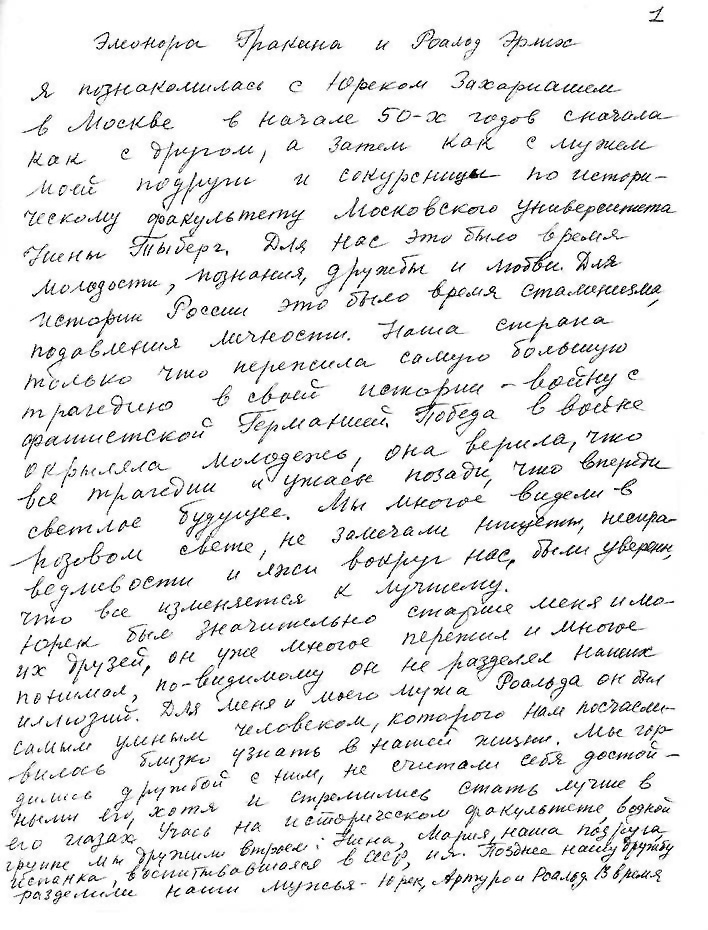 1
Элеонора Гракина и Роальд Эрлих
я познакомилась с Юреком Захариашем
в Москве в начале 50-х годов сначала
как с другом, а затем как с мужем
моей подруги и сокурсницы по истори-
ческому факультету Московского университета
Нины Тыберг. Для нас это было время
молодости, познания, дружбы и любви. Для
истории России это было время сталинизма,
подавления личности. Наша страна
только что пережила самую большую
трагедию в своей истории - войну с
фашистской Германией. Победа в войне
окрыляла молодежь, она верила, что
все трагедии и ужасы позади, что впереди
светлое будущее. Мы многое видели в
розовом свете, не замечали нищеты, неспра-
ведливости и лжи вокруг нас, были уверены,
что все изменяется к лучшему.
Юрек был значительно старше меня и мо-
их друзей, он уже многое пережил и многое
понимал, по-видимому он не разделял наших
иллюзий. Для меня и моего мужа Роальда он был
самым умным человеком, которого нам посчасли-
вилось близко узнать в нашей жизни. Мы гор-
дились дружбой с ним, не считали себя достой-
ными его, хотя и стремились стать лучше в
его глазах. Учась на историческом факультете, в одной
группе мы дружили втроем: Нина, Мария, наша подруга,
испанка, воспитывавшаяся в СССР, и я. Позднее нашу дружбу
разделили наши мужья - Юрек, Артуро и Роальд. В время